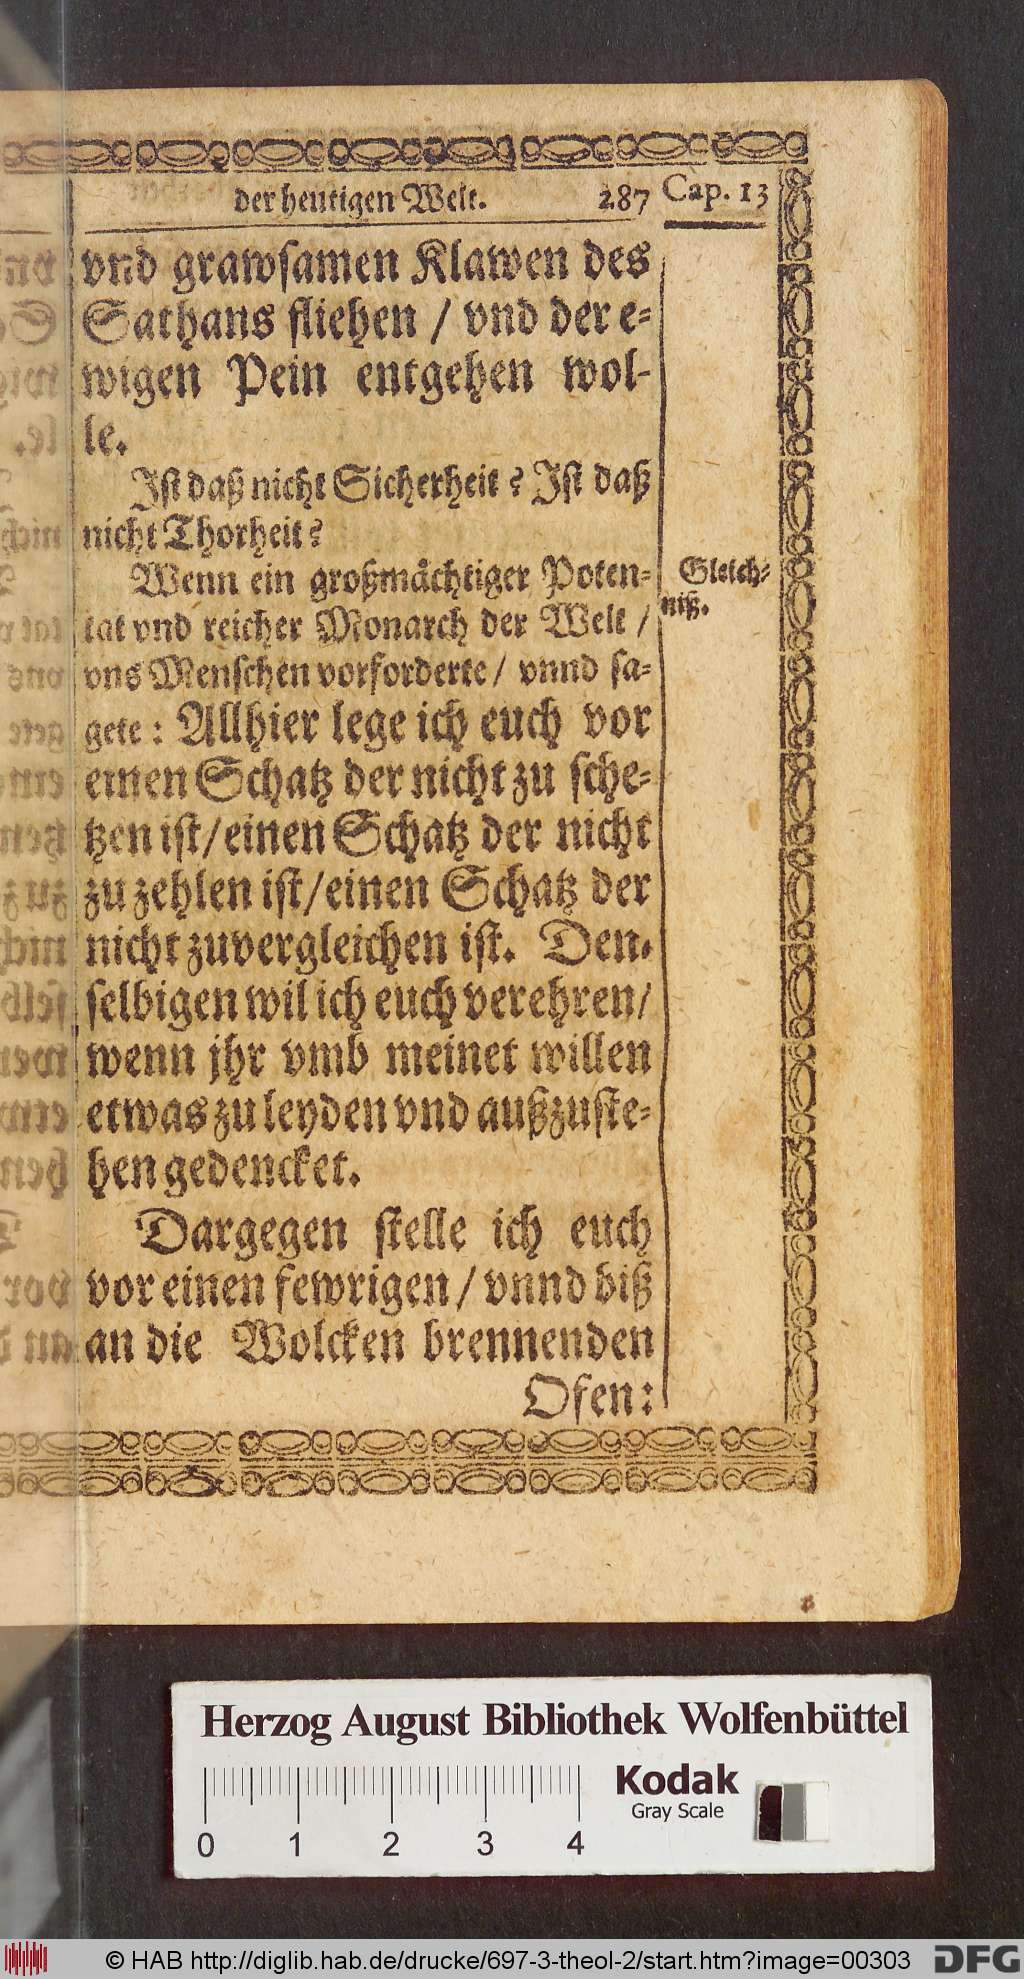 der heutigen Welt. 287 Cap. 13
vnd grawsamen Klawen des
Sathans fliehen / vnd der e⸗
wigen Pein entgehen wol⸗
le.
Ist daß nicht Sicherheit? Ist daß
nicht Thorheit?
Wenn ein großmåchtiger Poten⸗
Gleich⸗
niß.
tat vnd reicher Monarch der Welt /
vns Menschen vorforderte / vnnd sa⸗
gete: Allhier lege ich euch vor
einen Schatz der nicht zu sche⸗
tzen ist / einen Schatz der nicht
zu zehlen ist / einen Schatz der
nicht zuvergleichen ist. Den⸗
selbigen wil ich euch verehren /
wenn jhr vmb meinet willen
etwas zu leyden vnd außzuste⸗
hen gedencket.
Dargegen stelle ich euch
vor einen fewrigen / vnnd biß
an die Wolcken brennenden
Ofen:
Herzog August Bibliothek Wolfenbüttel
Kodak
Gray Scale
0 1 2 3 4
© HAB http://diglib.hab.de/drucke/697-3-theol-2/start.htm?image=00303 DFG